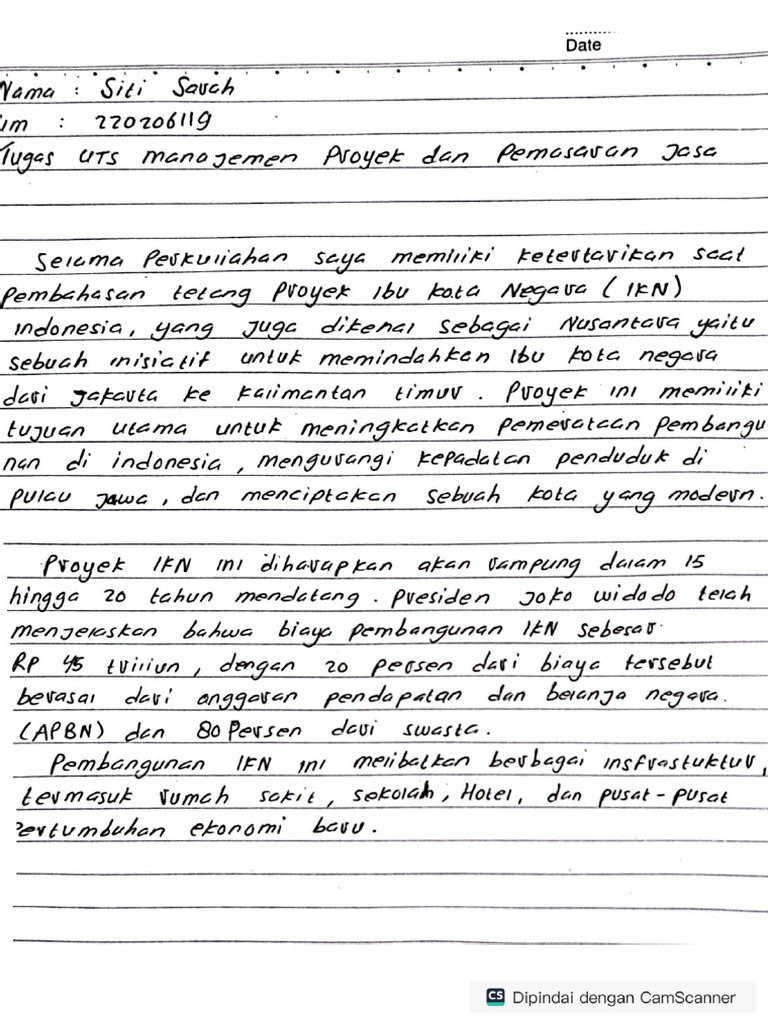 Date
Nama : Siti Sarah
im : 220206119
Tugas UTS manajemen Proyek dan Pemasaran Jasa
Selama Perkuliahan saya memiliki ketertarikan saat
Pembahasan tetang Proyek Ibu kota Negara ( IKN )
indonesia, yang juga dikenal sebagai Nusantara yaitu
sebuah inisiatif untuk memindahkan Ibu kota negara
dari jakarta ke kalimantan timur. Proyek ini memiliki
tujuan utama untuk meningkatkan pemerataan Pembangu
nan di indonesia, mengurangi kepadatan penduduk di
pulau jawa, dan menciptakan sebuah kota yang modern.
Proyek IKN ini diharapkan akan rampung dalam 15
hingga 20 tahun mendatang. Presiden Joko widodo telah
menjelaskan bahwa biaya pembangunan IKN sebesar
RP 45 triliun, dengan 20 persen dari biaya tersebut
berasal dari anggaran pendapatan dan belanja negara.
(APBN) dan 80 Persen dari swasta.
Pembangunan IKN ini melibatkan berbagai insfrastuktur,
termasuk rumah sakit, sekolah, Hotel, dan pusat-pusat
ertumbuhan ekonomi baru.
CS Dipindai dengan CamScanner